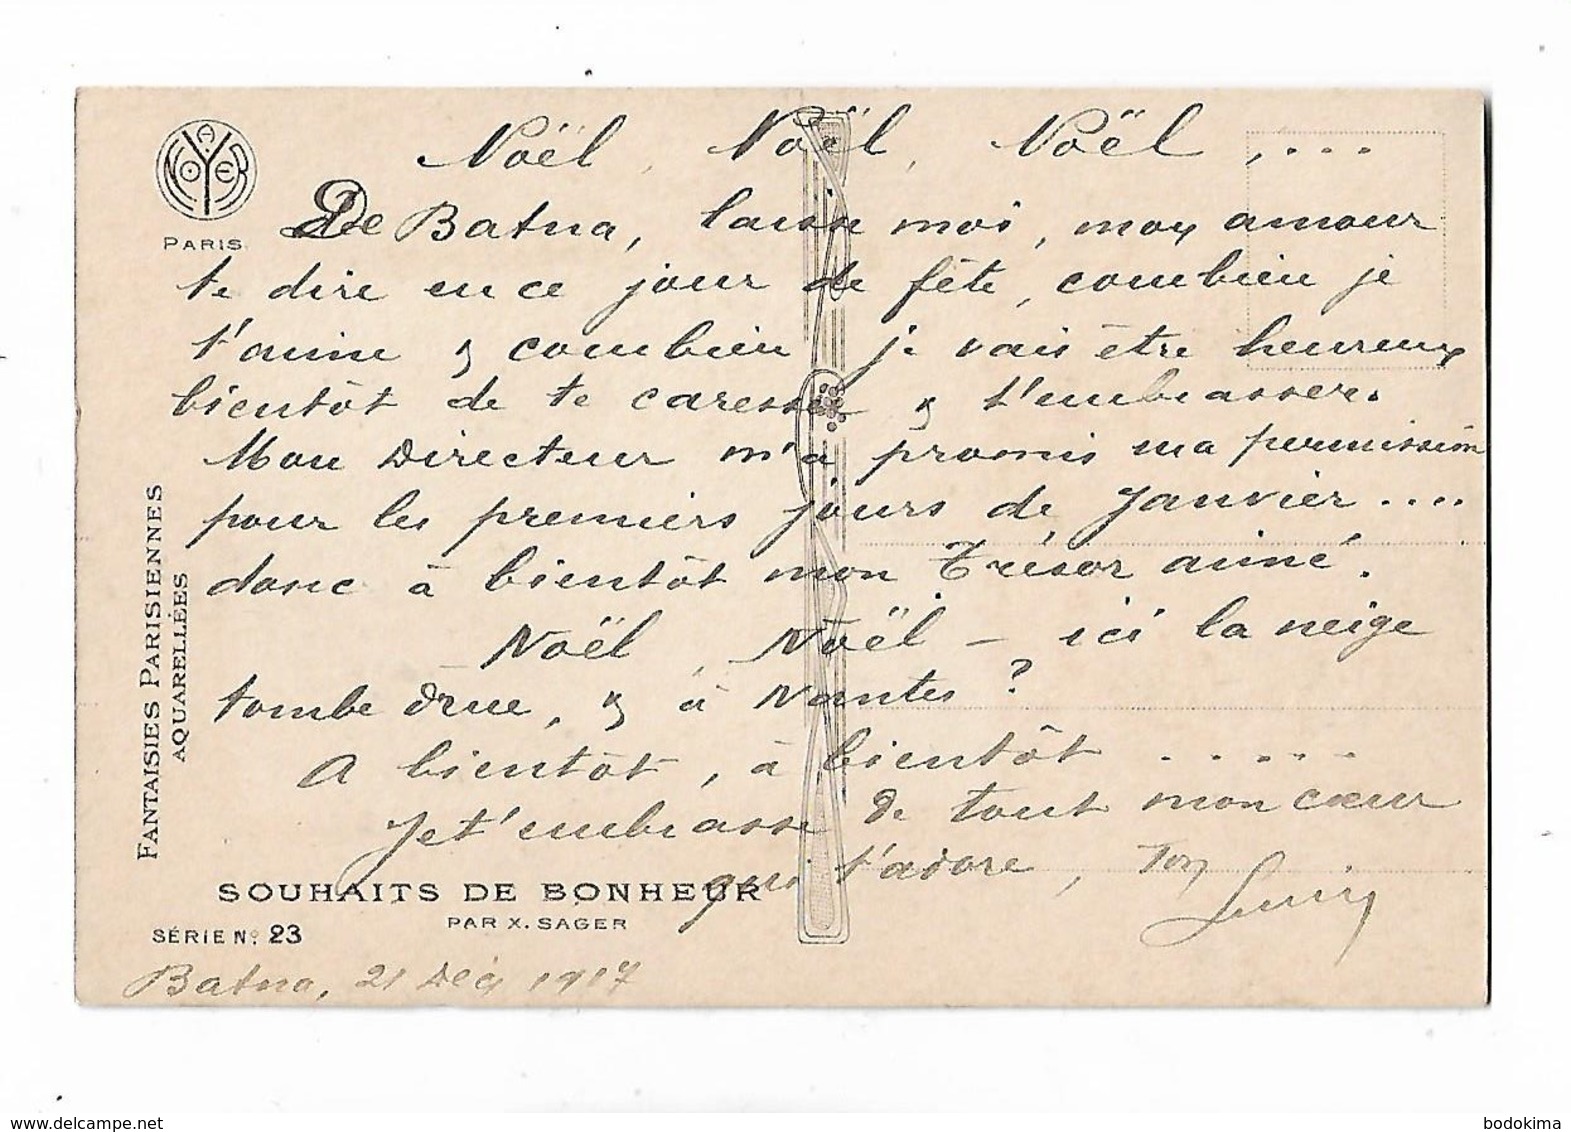 NOYER
PARIS
Noël, Noël, Noël, ....
De Batna, laisse moi, mon amour
te dire en ce jour de fête, combien je
t'aime & combien je vais être heureux
bientôt de te caresser & t'embrasser.
Mon Directeur m'a promis ma permission
pour les premiers jours de Janvier ....
donc à bientôt mon Trésor aimé.
Noël, Noël – ici la neige
tombe drue, & à Nantes ?
A bientôt, à bientôt .....
Je t'embrasse de tout mon cœur
qui t'adore, Ton
FANTAISIES PARISIENNES
AQUARELLÉES
SOUHAITS DE BONHEUR
PAR X. SAGER
SÉRIE No. 23
Batna, 21 Déc 1917
delcampe.net
bodokima